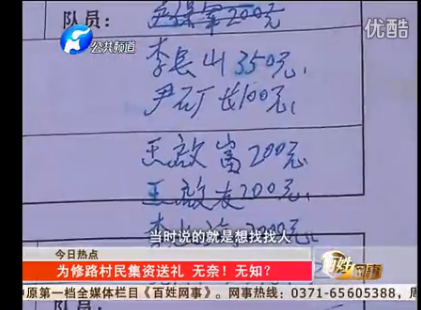 优酷
公共频道
队员:
200元
李长山350元
尹石厂长100元
王啟富200元
王啟友200元
当时说的就是想找找人
今日热点
为修路村民集资送礼 无奈!无知?
百姓网事
中原第一档全媒体栏目《百姓网事》。网事热线:0371-65605388,